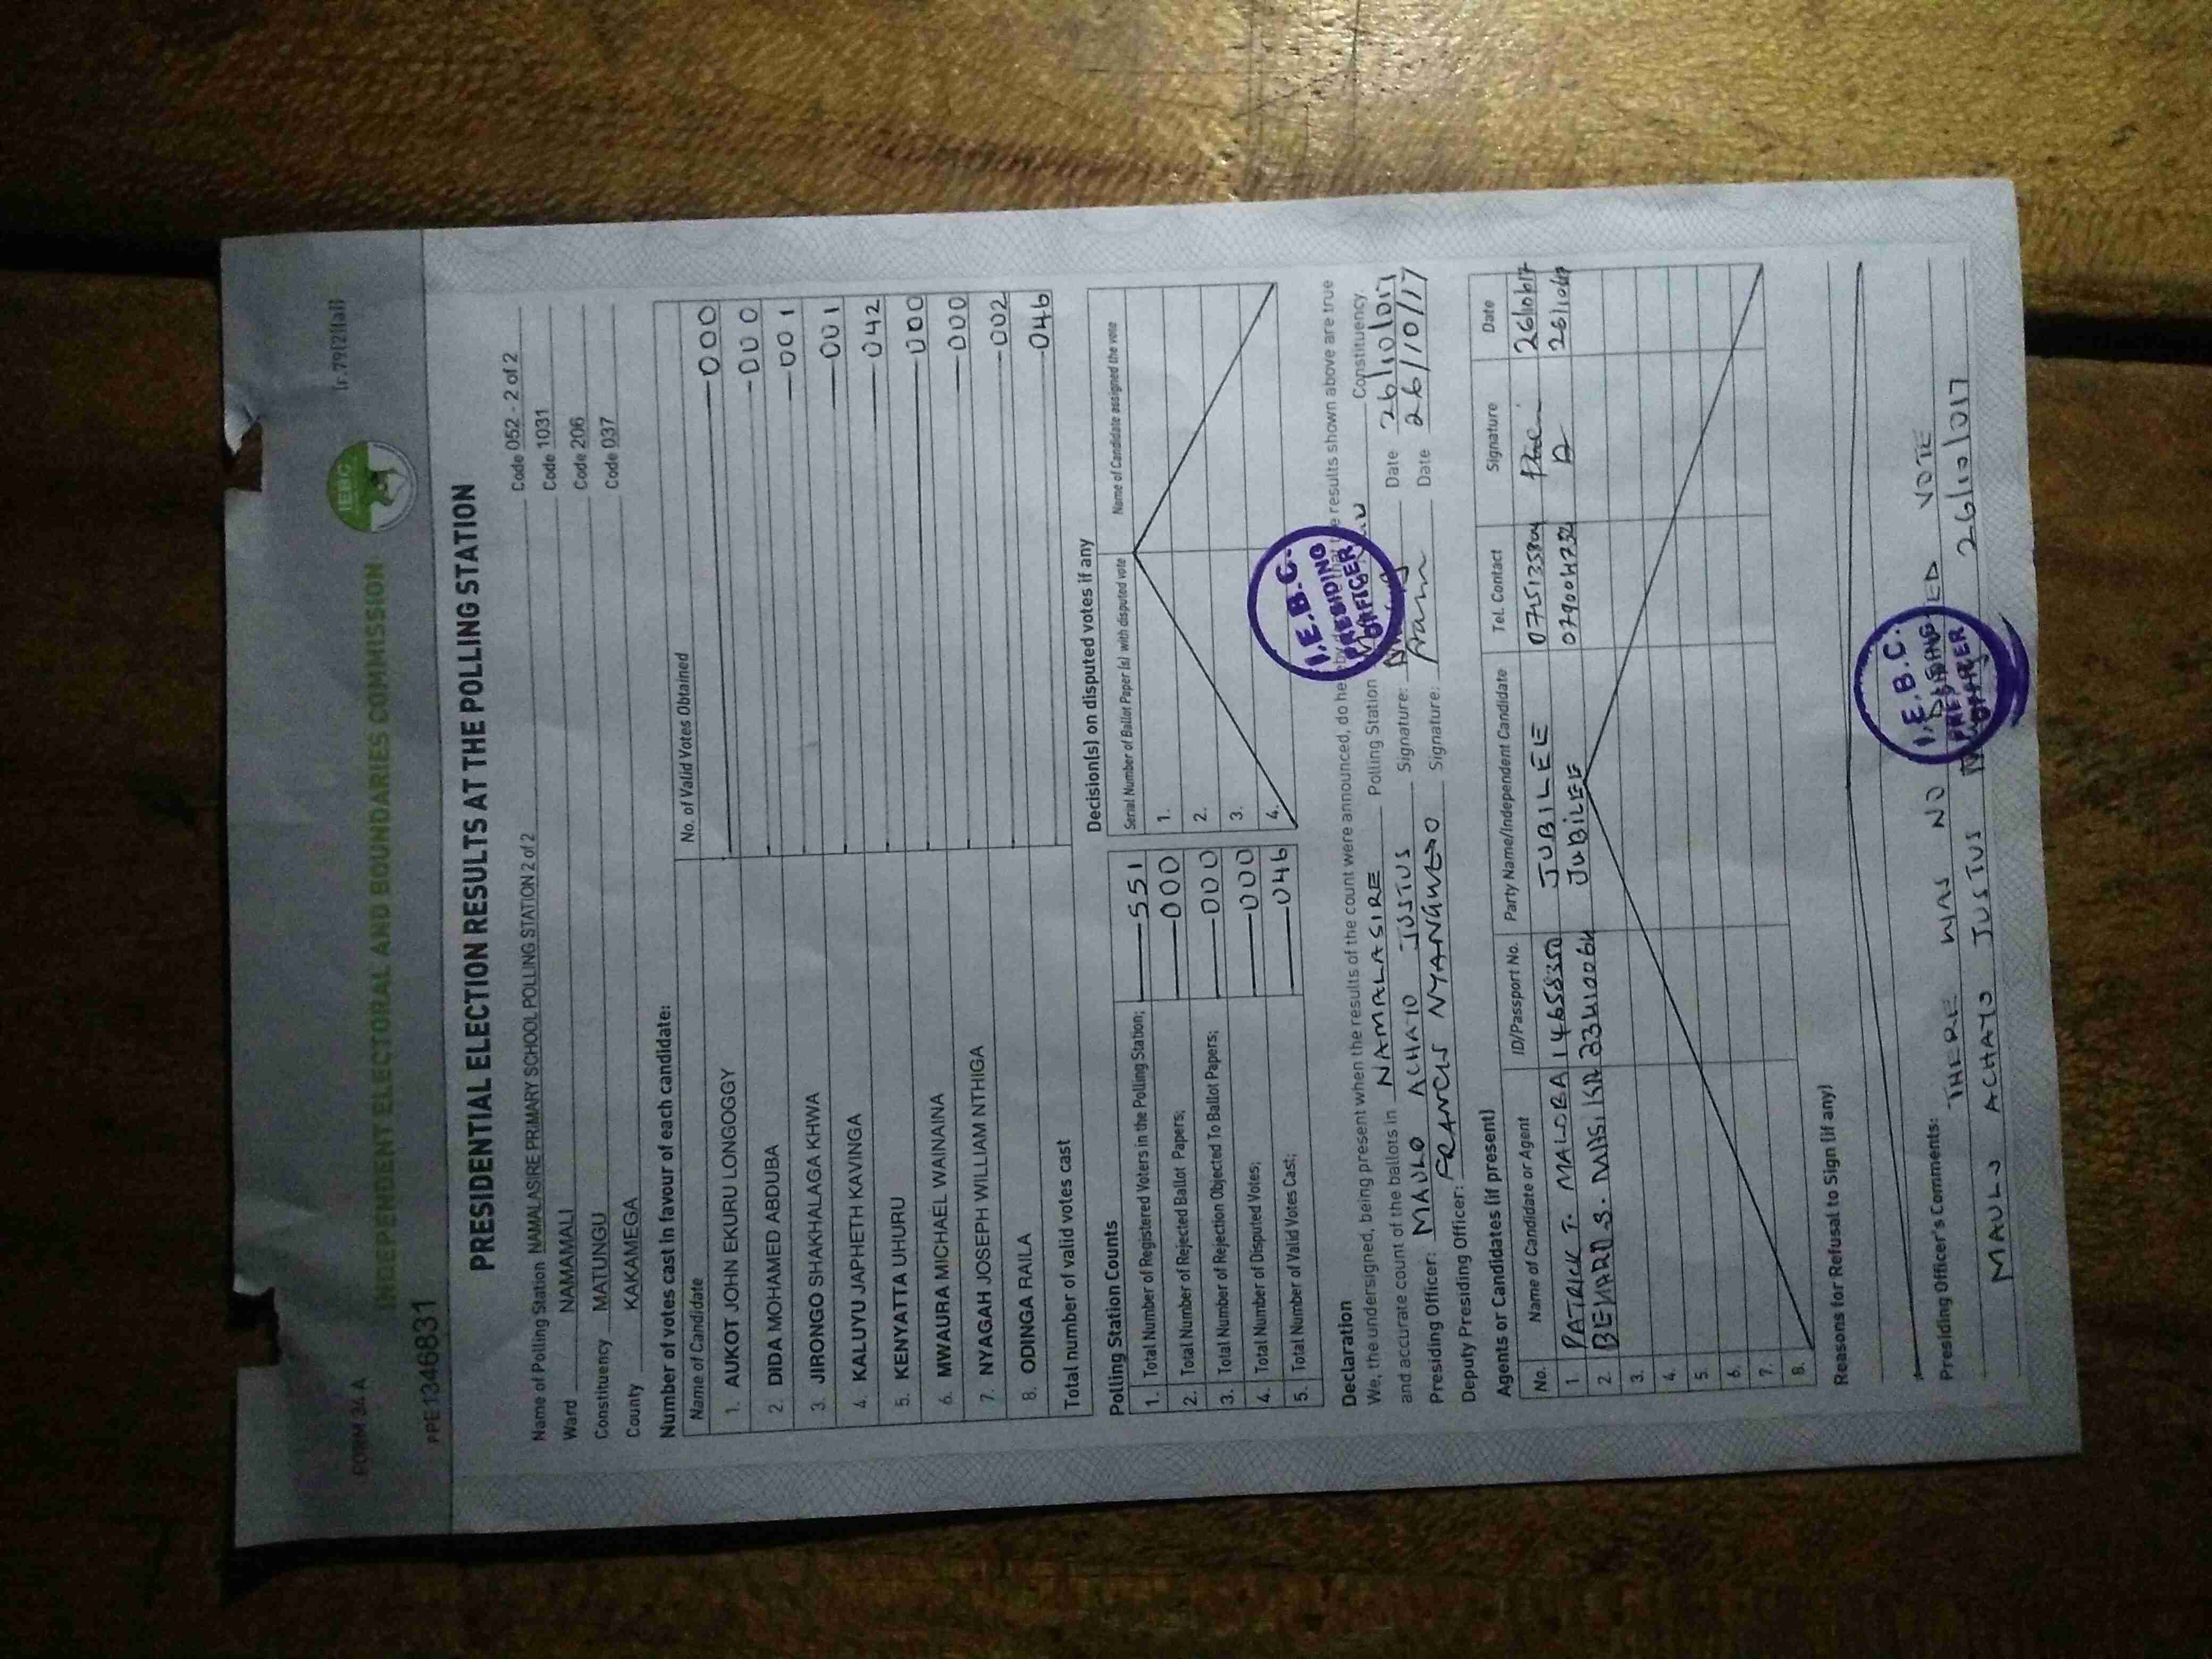 FORM 34 A
(r.79(2)(a))
INDEPENDENT ELECTORAL AND BOUNDARIES COMMISSION
IEBC
PPE1346831
PRESIDENTIAL ELECTION RESULTS AT THE POLLING STATION
Name of Polling Station NAMALASIRE PRIMARY SCHOOL POLLING STATION 2 of 2 Code 052 - 2 of 2
Ward NAMAMALI Code 1031
Constituency MATUNGU Code 206
County KAKAMEGA Code 037
Number of votes cast in favour of each candidate:
Name of Candidate No. of Valid Votes Obtained
1. AUKOT JOHN EKURU LONGOGGY 000
2. DIDA MOHAMED ABDUBA 000
3. JIRONGO SHAKHALAGA KHWA 001
4. KALUYU JAPHETH KAVINGA 001
5. KENYATTA UHURU 042
6. MWAURA MICHAEL WAINAINA 000
7. NYAGAH JOSEPH WILLIAM NTHIGA 000
8. ODINGA RAILA 002
Total number of valid votes cast 046
Polling Station Counts
1. Total Number of Registered Voters in the Polling Station; 551
2. Total Number of Rejected Ballot Papers; 000
3. Total Number of Rejection Objected To Ballot Papers; 000
4. Total Number of Disputed Votes; 000
5. Total Number of Valid Votes Cast; 046
Decision(s) on disputed votes if any
Serial Number of Ballot Paper (s) with disputed vote Name of Candidate assigned the vote
1.
2.
3.
4.
I.E.B.C. PRESIDING OFFICER
Declaration
We, the undersigned, being present when the results of the count were announced, do hereby that the results shown above are true
and accurate count of the ballots in NAMALASIRE Polling Station Constituency.
Presiding Officer: MAULO ACHAYO JUSTUS Signature: Date 26/10/017
Deputy Presiding Officer: FRANCIS NYANGWESO Signature: Date 26/10/17
Agents or Candidates (if present)
No. Name of Candidate or Agent ID/Passport No. Party Name/Independent Candidate Tel. Contact Signature Date
1. PATRICK T. MALOBA 14658350 JUBILEE
2. JUBILEE
3.
4.
5.
6.
7.
8.
Reasons for Refusal to Sign (if any)
Presiding Officer's Comments: THERE WAS NO VOTE
MAULO ACHAYO JUSTUS 26/10/017
I.E.B.C. PRESIDING OFFICER